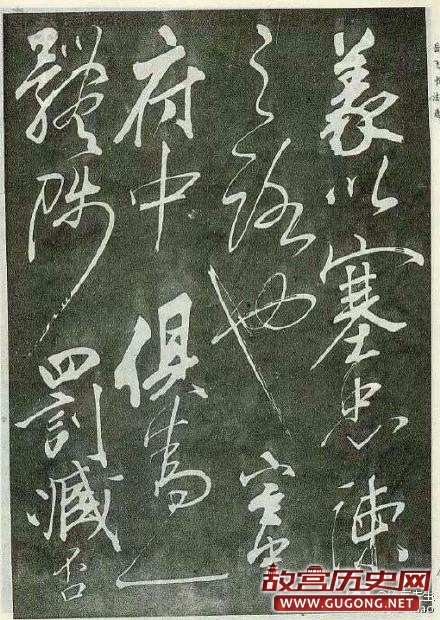 義以塞忠諫
之路也宮中
府中俱為一
體陟罰臧否
故宫历史网
WWW.GUGONG.NET